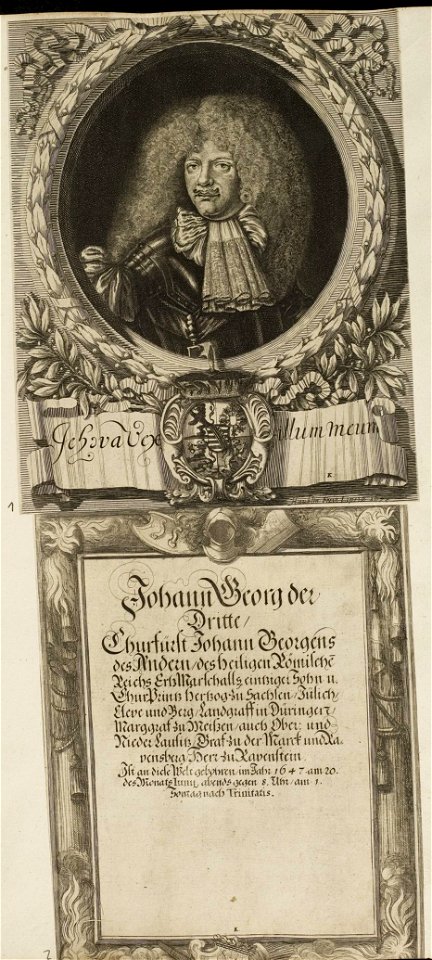 Jehova Vexillum meum
K
1
Johann Georg der
Dritte/
Churfürst Johann Georgens
des Andern/ des heiligen Römische
Reichs ErhMarschalls eintziger Sohn u.
ChurPrintz Hertzog zu Sachsen/ Jülich/
Cleve und Berg/ Landgraff in Düringen/
Marggraf zu Meißen/ auch Ober- und
Nieder Lausitz/ Graf zu der Marck und Ra-
vensberg/ Herr zu Ravenstein.
Ist an diese Welt gebohren/ im Jahr 1647 am 20.
des Monats Junij, abends gegen 8. Uhr/ am 1.
Sontag nach Trinitatis.
K
2